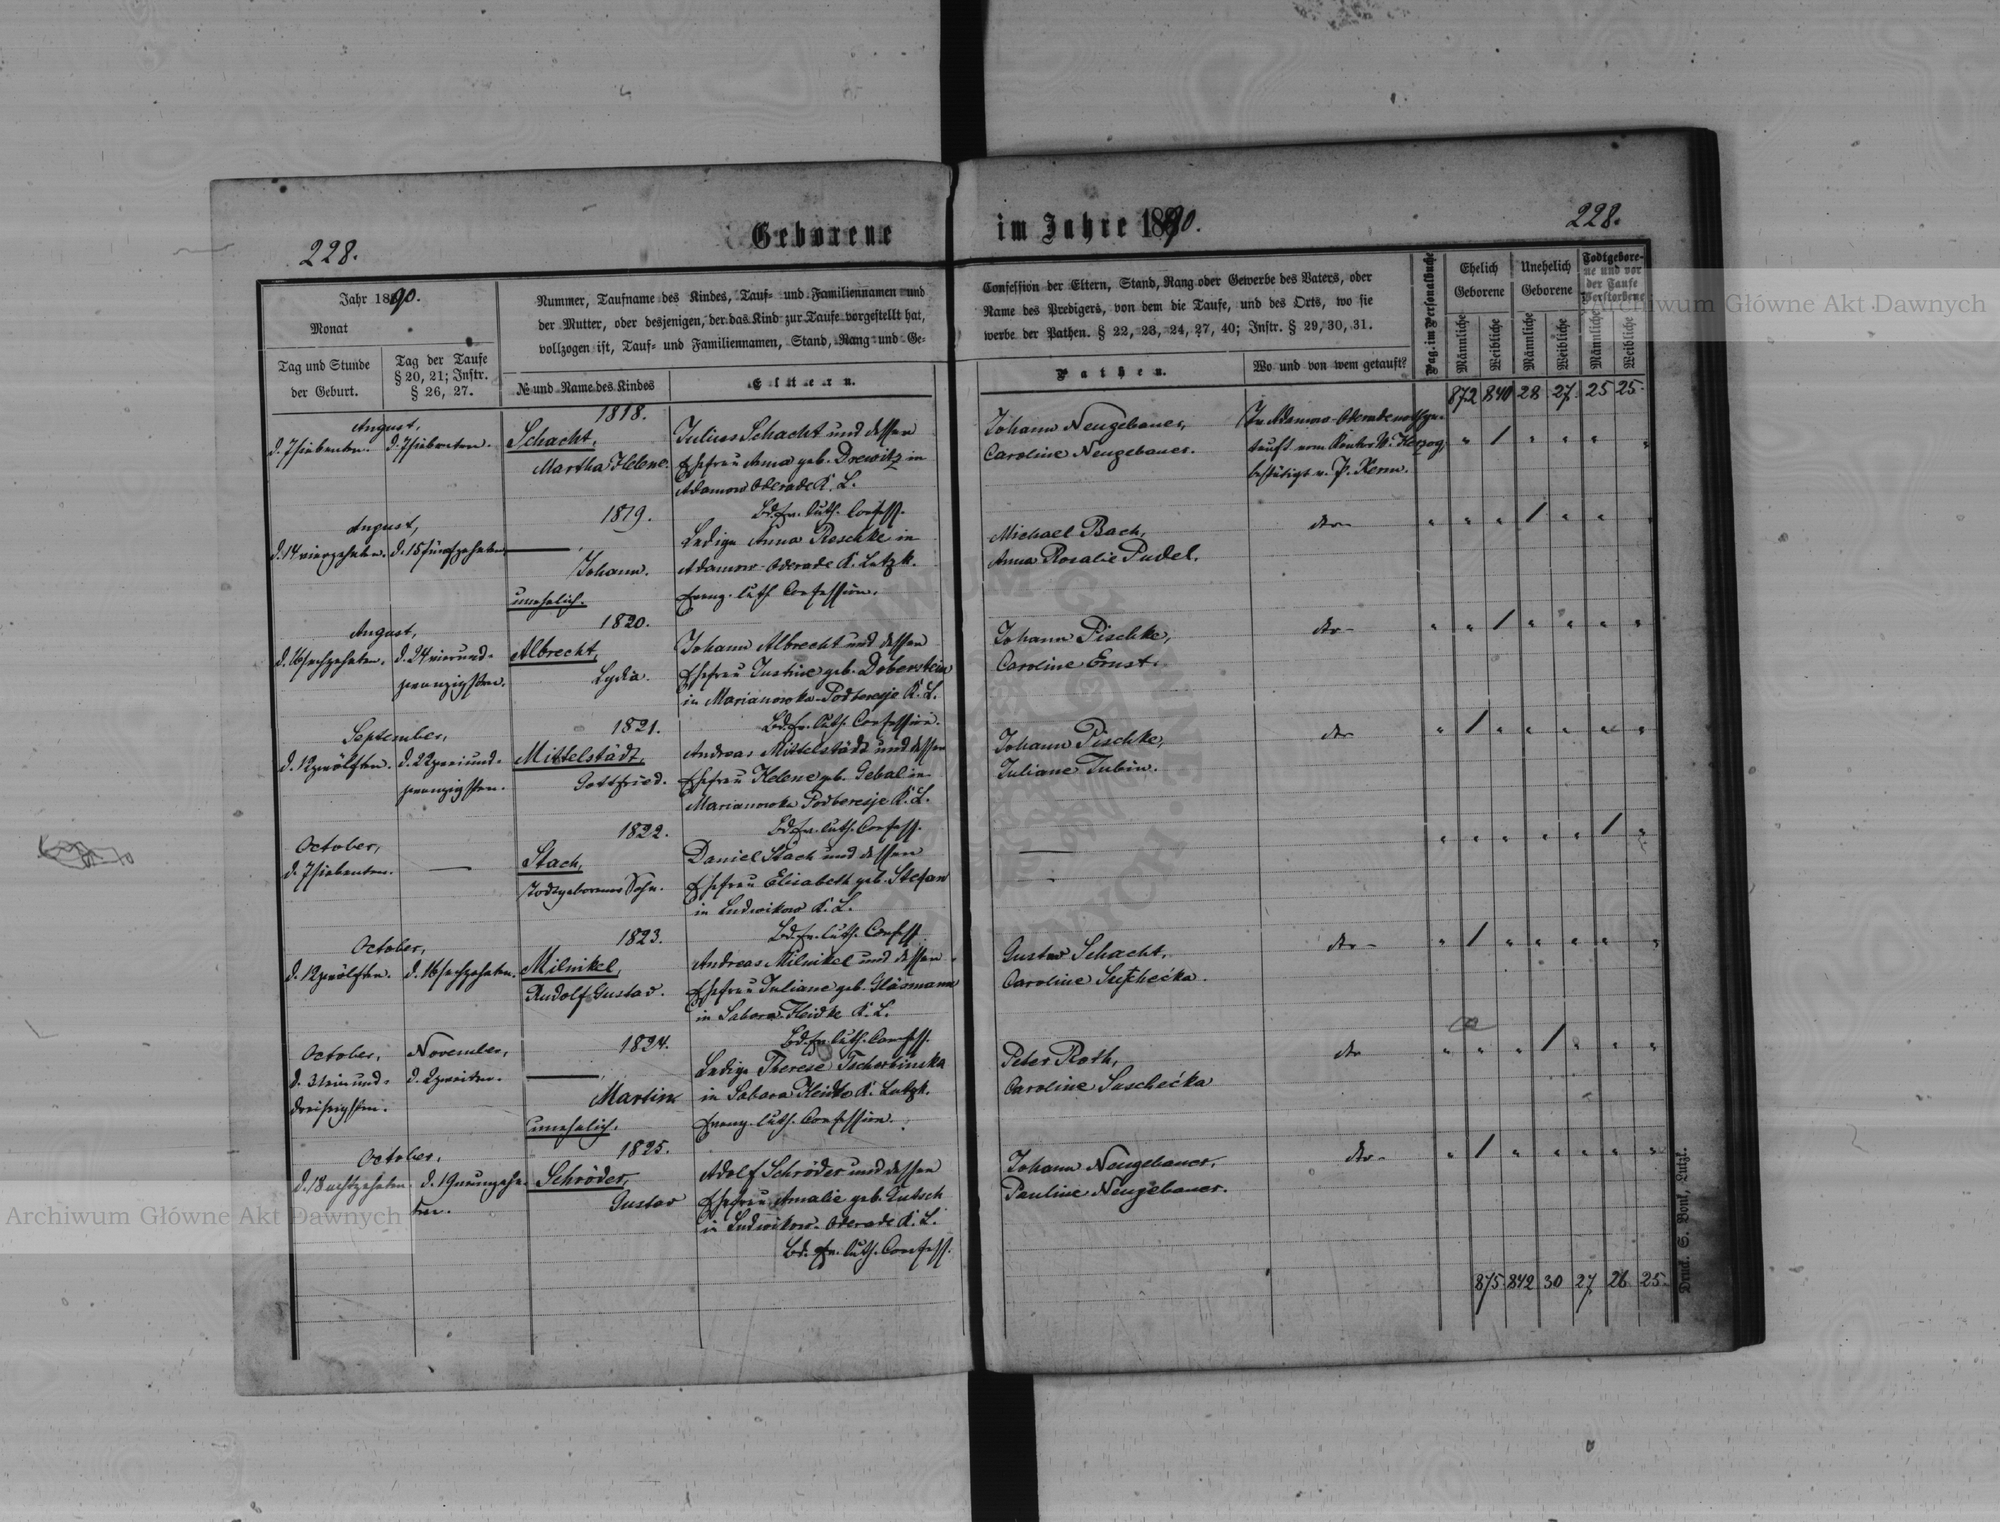 228.
Geborene im Jahre 1890.
228.
Jahr 1890.
Monat
Tag und Stunde
der Geburt.
Tag der Taufe
§ 20, 21; Instr.
§ 26, 27.
Nummer, Taufname des Kindes, Tauf- und Familiennamen und
der Mutter, oder desjenigen, der das Kind zur Taufe vorgestellt hat,
vollzogen ist, Tauf- und Familiennamen, Stand, Rang und Ge-
№ und Name des Kindes
Eltern.
Confession der Eltern, Stand, Rang oder Gewerbe des Vaters, oder
Name des Predigers, von dem die Taufe, und des Orts, wo sie
werbe der Pathen. § 22, 23, 24, 27, 40; Instr. § 29, 30, 31.
Pathen.
Wo und von wem getauft?
Pag. im Personalbuche
Ehelich
Geborene
Unehelich
Geborene
Todtgebore-
ne und vor
der Taufe
Verstorbene
Männliche
Weibliche
Männliche
Weibliche
Männliche
Weibliche
872 840 28 27 25 25
August,
d. 7 siebenten. d. 7 siebenten.
1818.
Schacht,
Martha Helene.
Julius Schacht und dessen
Ehefrau Anna geb. Drewitz in
Adamow Oderade K. L.
Bd. ev. luth. Confess.
Johann Neugebauer,
Caroline Neugebauer.
In Adamow-Oderade nothge-
tauft vom Kantor W. Herzog,
bestätigt v. P. Kerm.
August,
d. 14 vierzehnten. d. 15 fünfzehnten.
1819.
Johann.
unehelich.
Ledige Anna Reschke in
Adamow-Oderade K. Lutzk.
Evang. luth. Confession.
Michael Bach,
Anna Rosalie Pudel.
dto
August,
d. 16 sechzehnten. d. 24 vierund-
zwanzigsten.
1820.
Albrecht,
Lydia.
Johann Albrecht und dessen
Ehefrau Justine geb. Doberstein
in Marianowka-Podteresje K. L.
Bd. ev. luth. Confession.
Johann Pischke,
Caroline Ernst.
dto
September,
d. 12 zwölften. d. 22 zweiund-
zwanzigsten.
1821.
Mittelstädt,
Gottfried.
Andreas Mittelstädt und dessen
Ehefrau Helene geb. Gebal in
Marianowka Podteresje K. L.
Bd. ev. luth. Confess.
Johann Pischke,
Juliane Tubin.
dto
October,
d. 7 siebenten. —
1822.
Stach,
Todtgeborener Sohn.
Daniel Stach und dessen
Ehefrau Elisabeth geb. Stefan
in Ludwikow K. L.
Bd. ev. luth. Confess.
October,
d. 12 zwölften. d. 16 sechzehnten.
1823.
Milnikel,
Rudolf Gustav.
Andreas Milnikel und dessen
Ehefrau Juliane geb. Gläsmann
in Sabara Heidke K. L.
Bd. ev. luth. Confess.
Gustav Schacht,
Caroline
dto
October,
d. 31 einund-
dreißigsten.
November,
d. 2 zweiten.
1824.
Martin
unehelich.
Ledige Therese Tscherbinska
in Sabara Heidke K. Lutzk.
Evang. luth. Confession.
Peter Roth,
Caroline Suschećka
dto
October,
d. 18 achtzehnten. d. 19 neunzehn-
ten.
1825.
Schröder,
Gustav
Adolf Schröder und dessen
Ehefrau Amalie geb. Kutsch
in Ludwikow-Oderade K. L.
Bd. ev. luth. Confess.
Johann Neugebauer,
Pauline Neugebauer.
dto
875 842 30 27 26 25
Druck. S. Bonk, Lutzk.
Archiwum Główne Akt Dawnych
Archiwum Główne Akt Dawnych